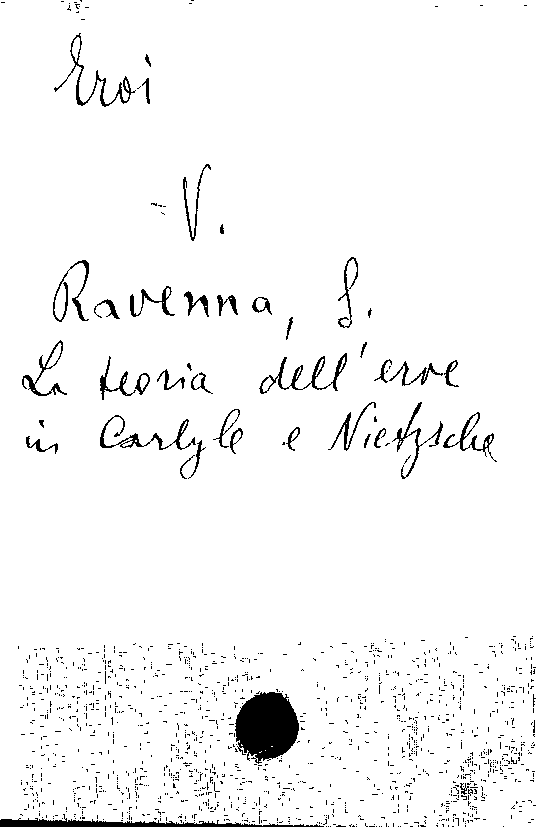 Eroi
- V.
Ravenna, S.
La teoria dell'eroe
in Carlyle e Nietzsche